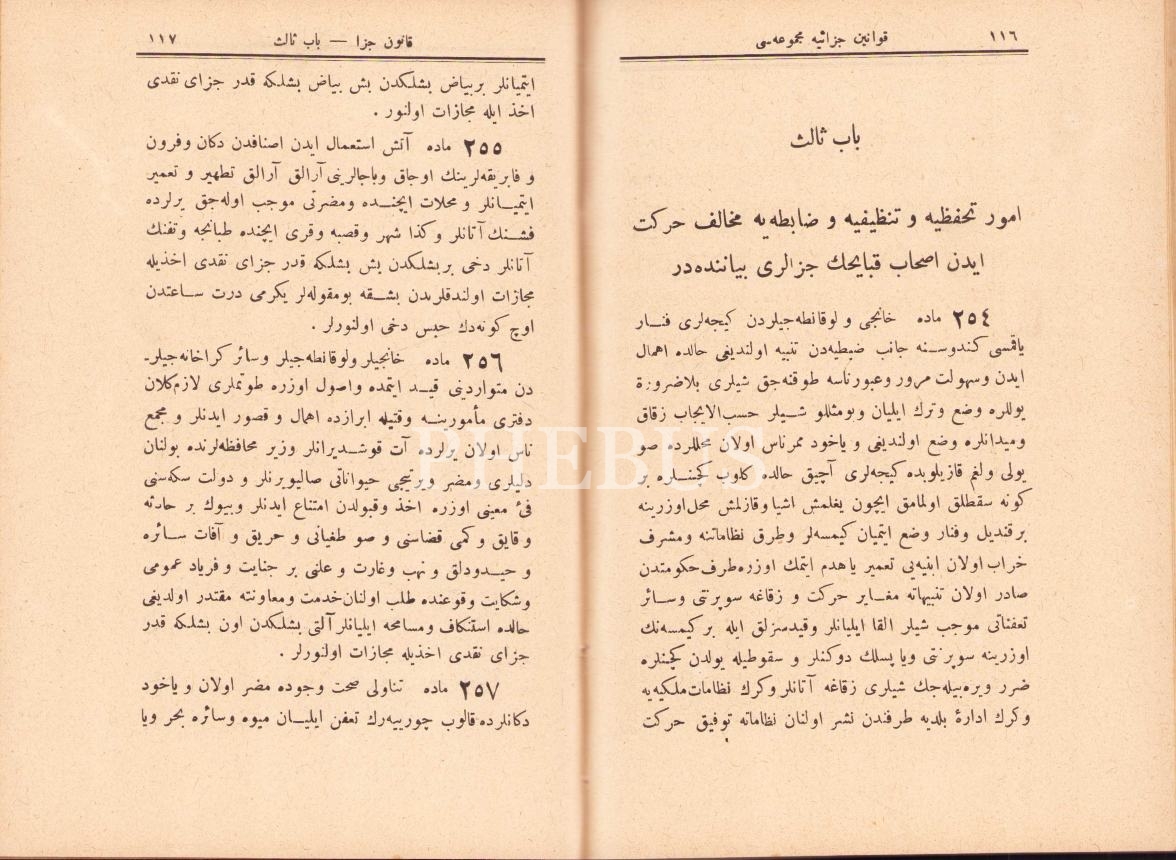 ١١٦ قوانین جزائیه مجموعه‌سی
باب ثالث
امور تحفظیه و تنظیفیه و ضابطه‌یه مخالف حرکت
ایدن اصحاب قبایحك جزالری بیاننده‌در
٢٥٤ ماده خانجی و لوقانطه‌جیلردن کیجه‌لری فنـار
یاقمسی کندوسـنه جانب ضبطیه‌دن تنبیه اولندیغی حالده اهمال
ایدن وسهولت مرور وعبورناسه طوقنه‌جق شیلری بلاضرورة
یوللره وضع وترك ایلیان وبومثللو شـیلر حسب‌الایجاب زقاق
ومیدانلره وضع اولندیغی و یاخود ممرناس اولان محللرده صو
یولی ولغم قازیلوبده کیجه‌لری آچیق حالده کلوب کچنـلره بر
کونه سقطلق اولمامق ایچون یغلمش اشیا وقازلمش محل‌اوزرینه
برقندیل وفنار وضع ایتمیان کیمسه‌لر وطرق نظاماتنه ومشرف
خراب اولان ابنیه‌یی تعمیر یاهدم ایتمك اوزره‌طرف حکومتدن
صادر اولان تنبیهاته مغـایر حرکت و زقاغه سوپرنتی وسـائر
تعفناتی موجب شیلر القا ایلیانلر وقیدسزلق ایله برکیمسه‌نك
اوزرینه سوپرنتی ویا پسلك دوکنلر و سقوطیله یولدن کچنلره
ضرر ویره‌بیله‌جك شیلری زقاغه آتانلر وکرك نظامات‌ملکیه‌یه
وکرك ادارهٔ بلدیه طرفندن نشر اولنان نظاماته توفیق حرکت
قانون جزا — باب ثالث ١١٧
ایتمیانلر بربیاض بشلکدن بش بیاض بشلکه قدر جزای نقدی
اخذ ایله مجازات اولنور .
٢٥٥ ماده آتش استعمال ایدن اصنافدن دکان وفرون
و فابریقه‌لرینك اوجاق وباجالرینی آرالق آرالق تطهیر و تعمیر
ایتمیـانلر و محلات ایچنـده ومضرتی موجب اوله‌جق یرلرده
فشـنك آتانلر و کذا شهر وقصبه وقری ایچنده طبانجه وتفنك
آتانلر دخی بربشلکدن بش بشلکه قدر جزای نقدی اخذیله
مجازات اولندقلرندن بشـقه بومقوله‌لر یکرمی درت سـاعتدن
اوچ کونه‌دك حبس دخی اولنورلر .
٢٥٦ ماده خانجیلر ولوقانطه‌جیلر وسائر کراخانه‌جیلر-
دن متواردینی قیـد ایتمده واصول اوزره طوتملری لازم‌کلان
دفتری مأمورینـه وقتیله ابرازده اهمال و قصور ایدنلر و مجمع
ناس اولان یرلرده آت قوشـدیرانلر وزیر محافظه‌لرنده بولنان
دلیلری ومضر ویرتیجی حیواناتی صالیویرنلر و دولت سکه‌سنی
فیٔ معینی اوزره اخذ وقبولدن امتناع ایدنلر وبیوك بر حادثه
و قایق و کمی قضاسنی و صو طغیانی و حریق و آفات سـائره
و حیـدودلق و نهب وغارت و علنی بر جنایت و فریاد عمومی
وشکایت وقوعنده طلب اولنان‌خدمت ومعاونته مقتدر اولدیغی
حالده استنکاف ومسامحه ایلیانلر آلتی بشلکدن اون بشلکه قدر
جزای نقدی اخذیله مجازات اولنورلر .
٢٥٧ ماده تناولی صحت وجوده مضر اولان و یاخود
دکانلرده قالوب چورییه‌رك تعفن ایلیـان میوه وسائره بحر ویا
PHEBUS